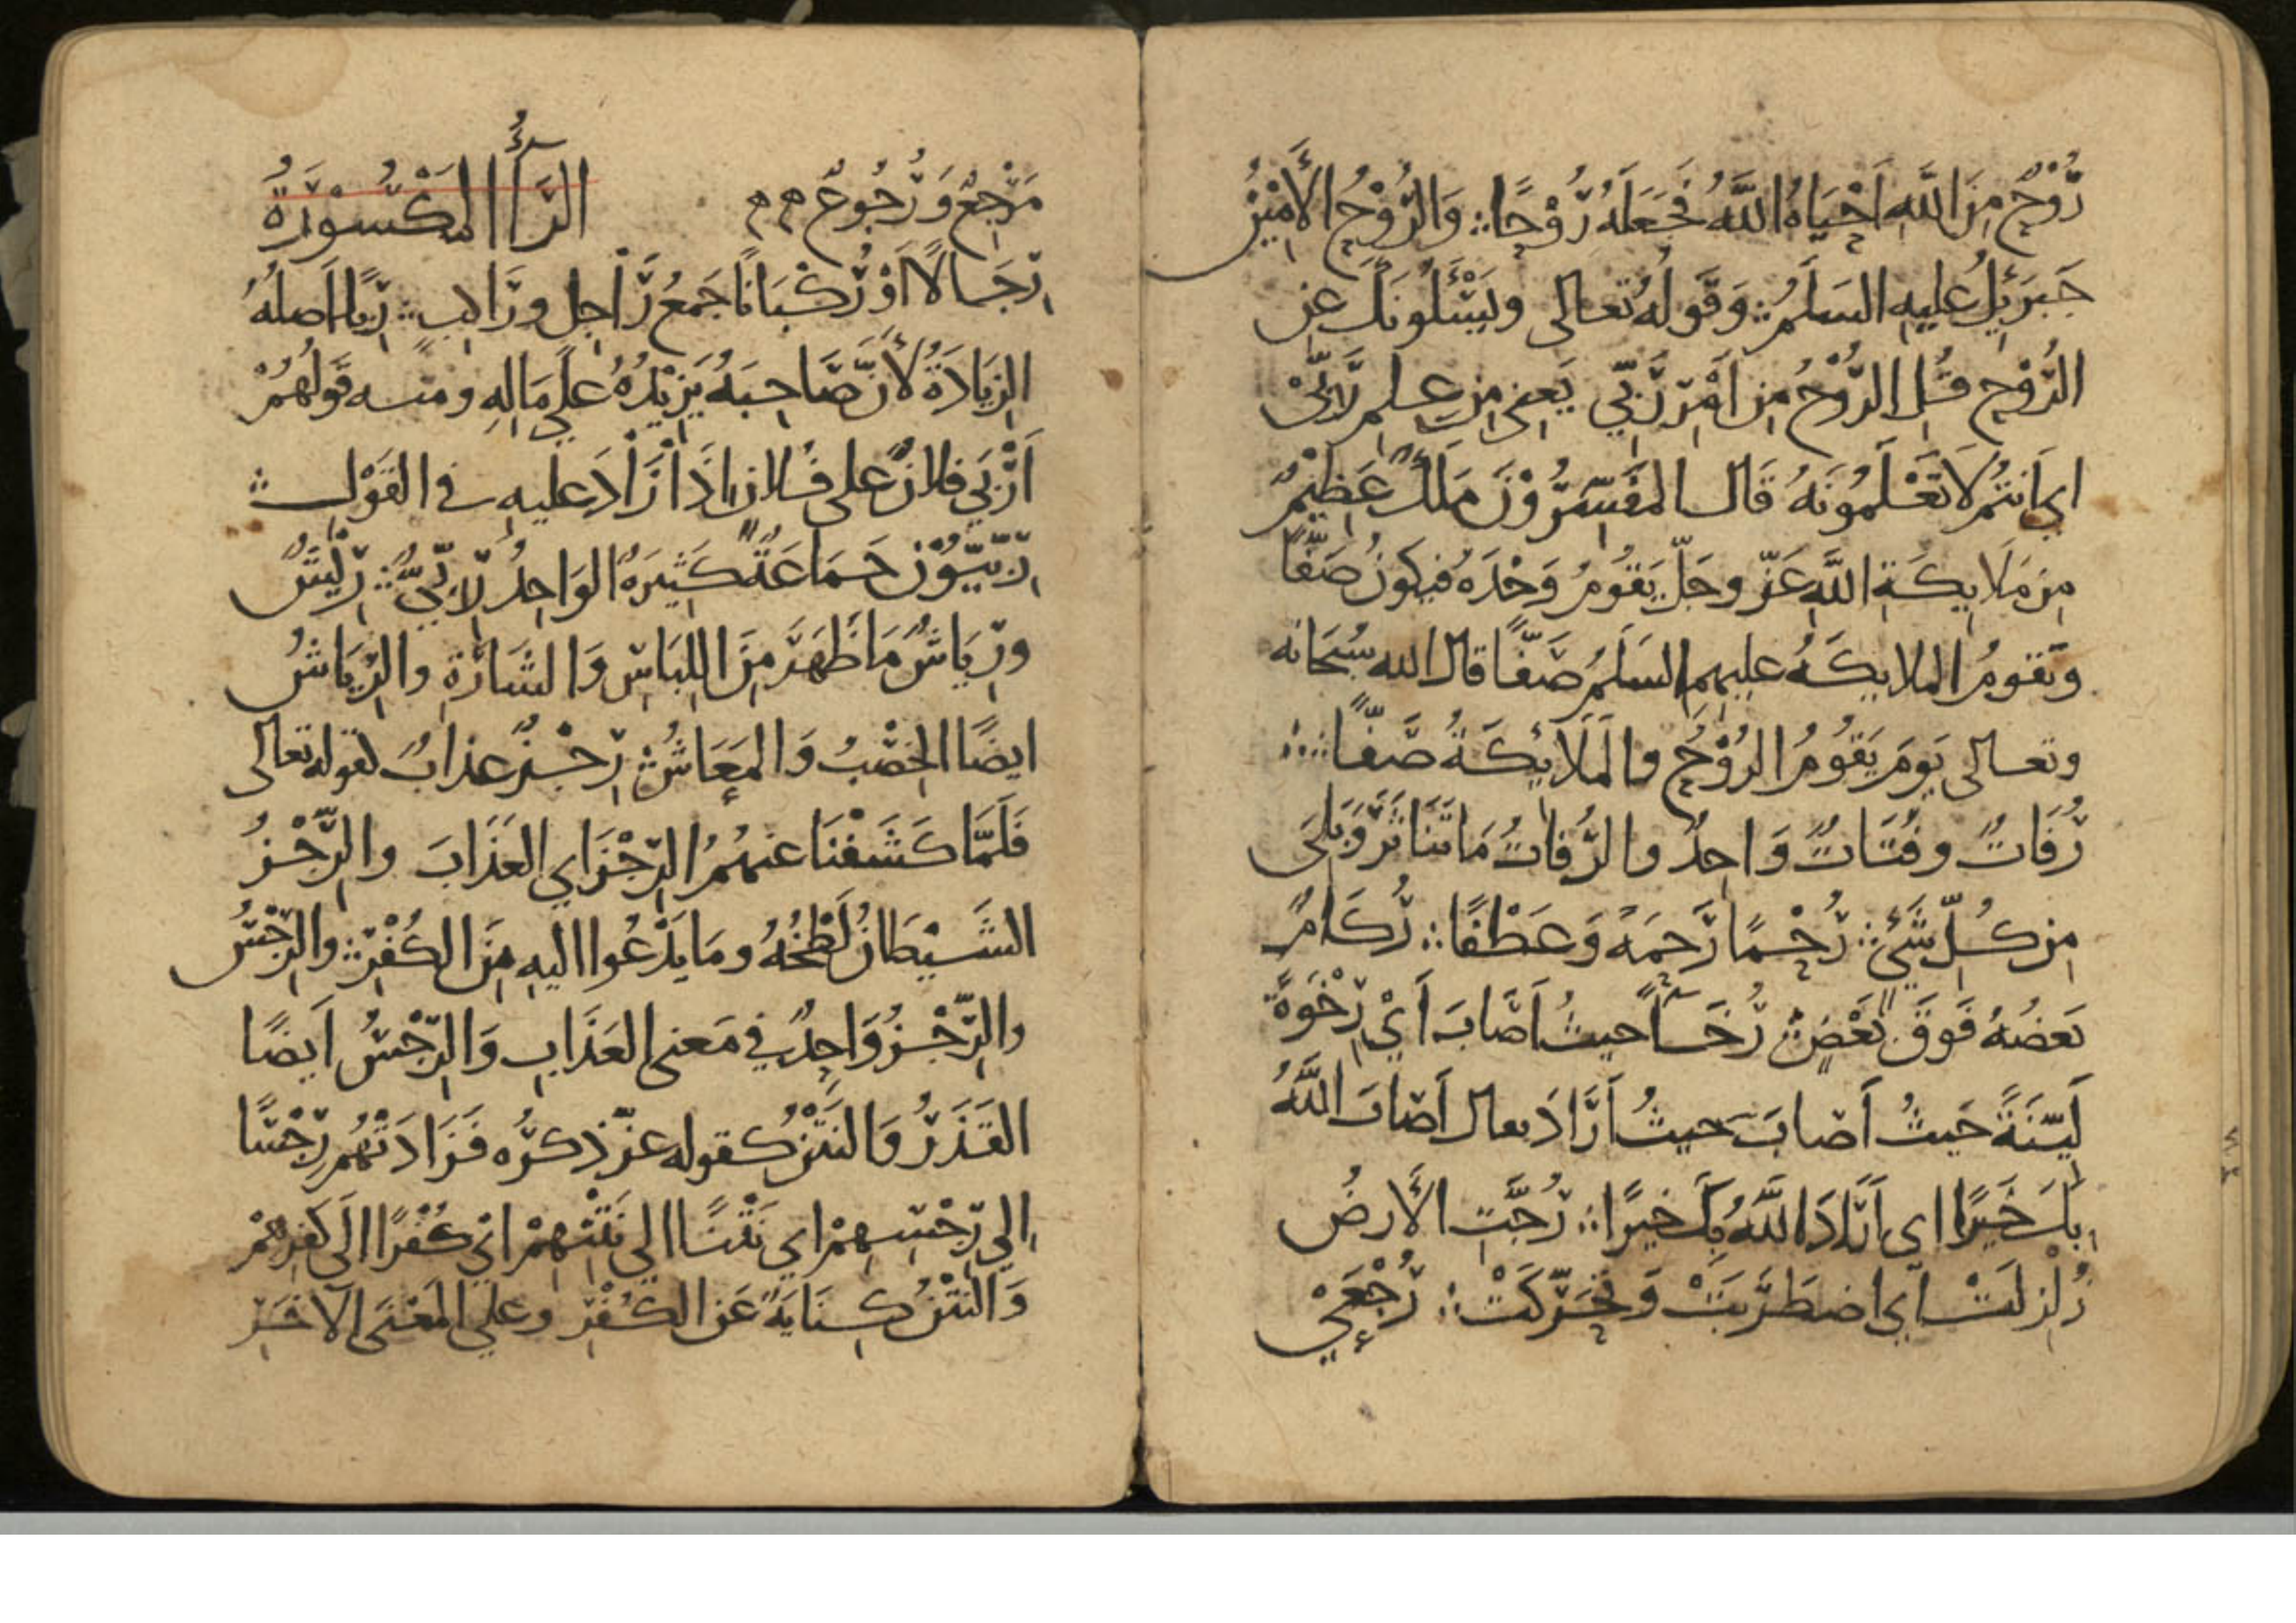 رُوْحٌ مِنَ اللَّهِ اَحْيَاهُ اللَّهُ فَجَعَلَهُ رُوْحًا ؞ وَالرُّوْحُ الأَمِيْنُ
جَبرَئِيلُ عليهِ السَلَمُ ؞ وَقَولُهُ تعالى ويَسْئَلُونَكَ عنِ
الرُّوْحِ قُلِ الرُّوْحُ مِن اَمْرِ رَبِّي يَعنِى مِن عِلمِ رَبِّيْ
اي اَنتُم لَا تَعْلَمُونَهُ قَال المفَسِّرُوْنَ مَلَكٌ عَظِيْمٌ
مِن مَلَايِكَةِ اللَّهِ عَزّ وجَلّ يَقُومُ وَحْدَهُ فيكونُ صَفًّا
وتَقومُ الملايكَهُ عليهم السَلَمُ صَفًّا قال الله سُبحَانه
وتعالى يَومَ يَقُومُ الرُوْحُ والمَلَائِكَةُ صَفًّا ؞
رُفَاتٌ وفُتَاتٌ وَاحِدٌ والرُفاتُ مَا تَنَاثَرَ وَبَلِىَ
مِن كُلِّ شَيْئٍ ؞ رُحْمًا رَحمَةً وَعَطْفًا ؞ رُكَامٌ
بَعضُهُ فَوقَ بَعْضٍ ؞ رُخَآءً حيثُ اَصَابَ اَيْ رِخْوَةً
لَيِّنَةً حَيثُ أَصَابَ حيثُ اَرَادَ يقال اَصَابَ اللَّهُ
بِكَ خَيرًا اي اَرَادَ اللَّهُ بِكَ خيرًا ؞ رُجَّتِ الأَرضُ
زُلزِلَتْ اي اضطَرَبَتْ وَتحَرَّكَتْ ؞ رُجْعَىْ
مَرْجِعٌ وَرُجُوعٌ م م الرَّآءُ المَكْسُوْرَةُ
رِجَالًا اَوْ رُكْبَانًا جَمعُ رَاجِل ورَاكِبٍ ؞ رِبًا اَصلُهُ
الزِيَادَةُ لأَنَّ صَاحِبَهُ يَزِيْدُهُ عَلَي مَالِهِ ومنه قَولُهُمْ
اَرْبَي فلانٌ على فُلانٍ اذَا زَادَ عليهِ في القَوْلِ ؞
رِبِّيُّوْن جَماعَةٌ كَثِيرَةٌ الوَاحِدُ رِبِّيٌّ ؞ رِيْشٌ
ورِيَاشٌ مَا ظَهَرَ مِنَ اللِبَاسِ وَالشَارَةِ والرِيَاشُ
ايضًا الخِصْبُ وَالمَعَاشُ ؞ رِجْزٌ عذابٌ لقوله تعالى
فَلَمَّا كَشَفْنَا عنهُمُ الرِجْزَ اي العَذَابَ والرِّجْزُ
الشَيْطَانِ لَطْخُهُ ومَا يَدْعُوا اليهِ مِنَ الكُفْرِ ؞ والرِجْسُ
والرِّجْزُ وَاحِدٌ في مَعنى العَذَابِ وَالرِّجْسُ اَيضًا
القَذَرُ وَالنَتْنُ كقوله عزّ ذكرُه فَزَادَتْهُم رِجْسًا
الي رِجْسِهِمْ اي نَتْنًا الى نَتْنِهِمْ ايْ كُفْرًا اِلَى كفرِهِمْ
وَالنَتْنُ كِنَايَةٌ عَن الكُفْرِ وعلي المَعْنَى الآخَرِ